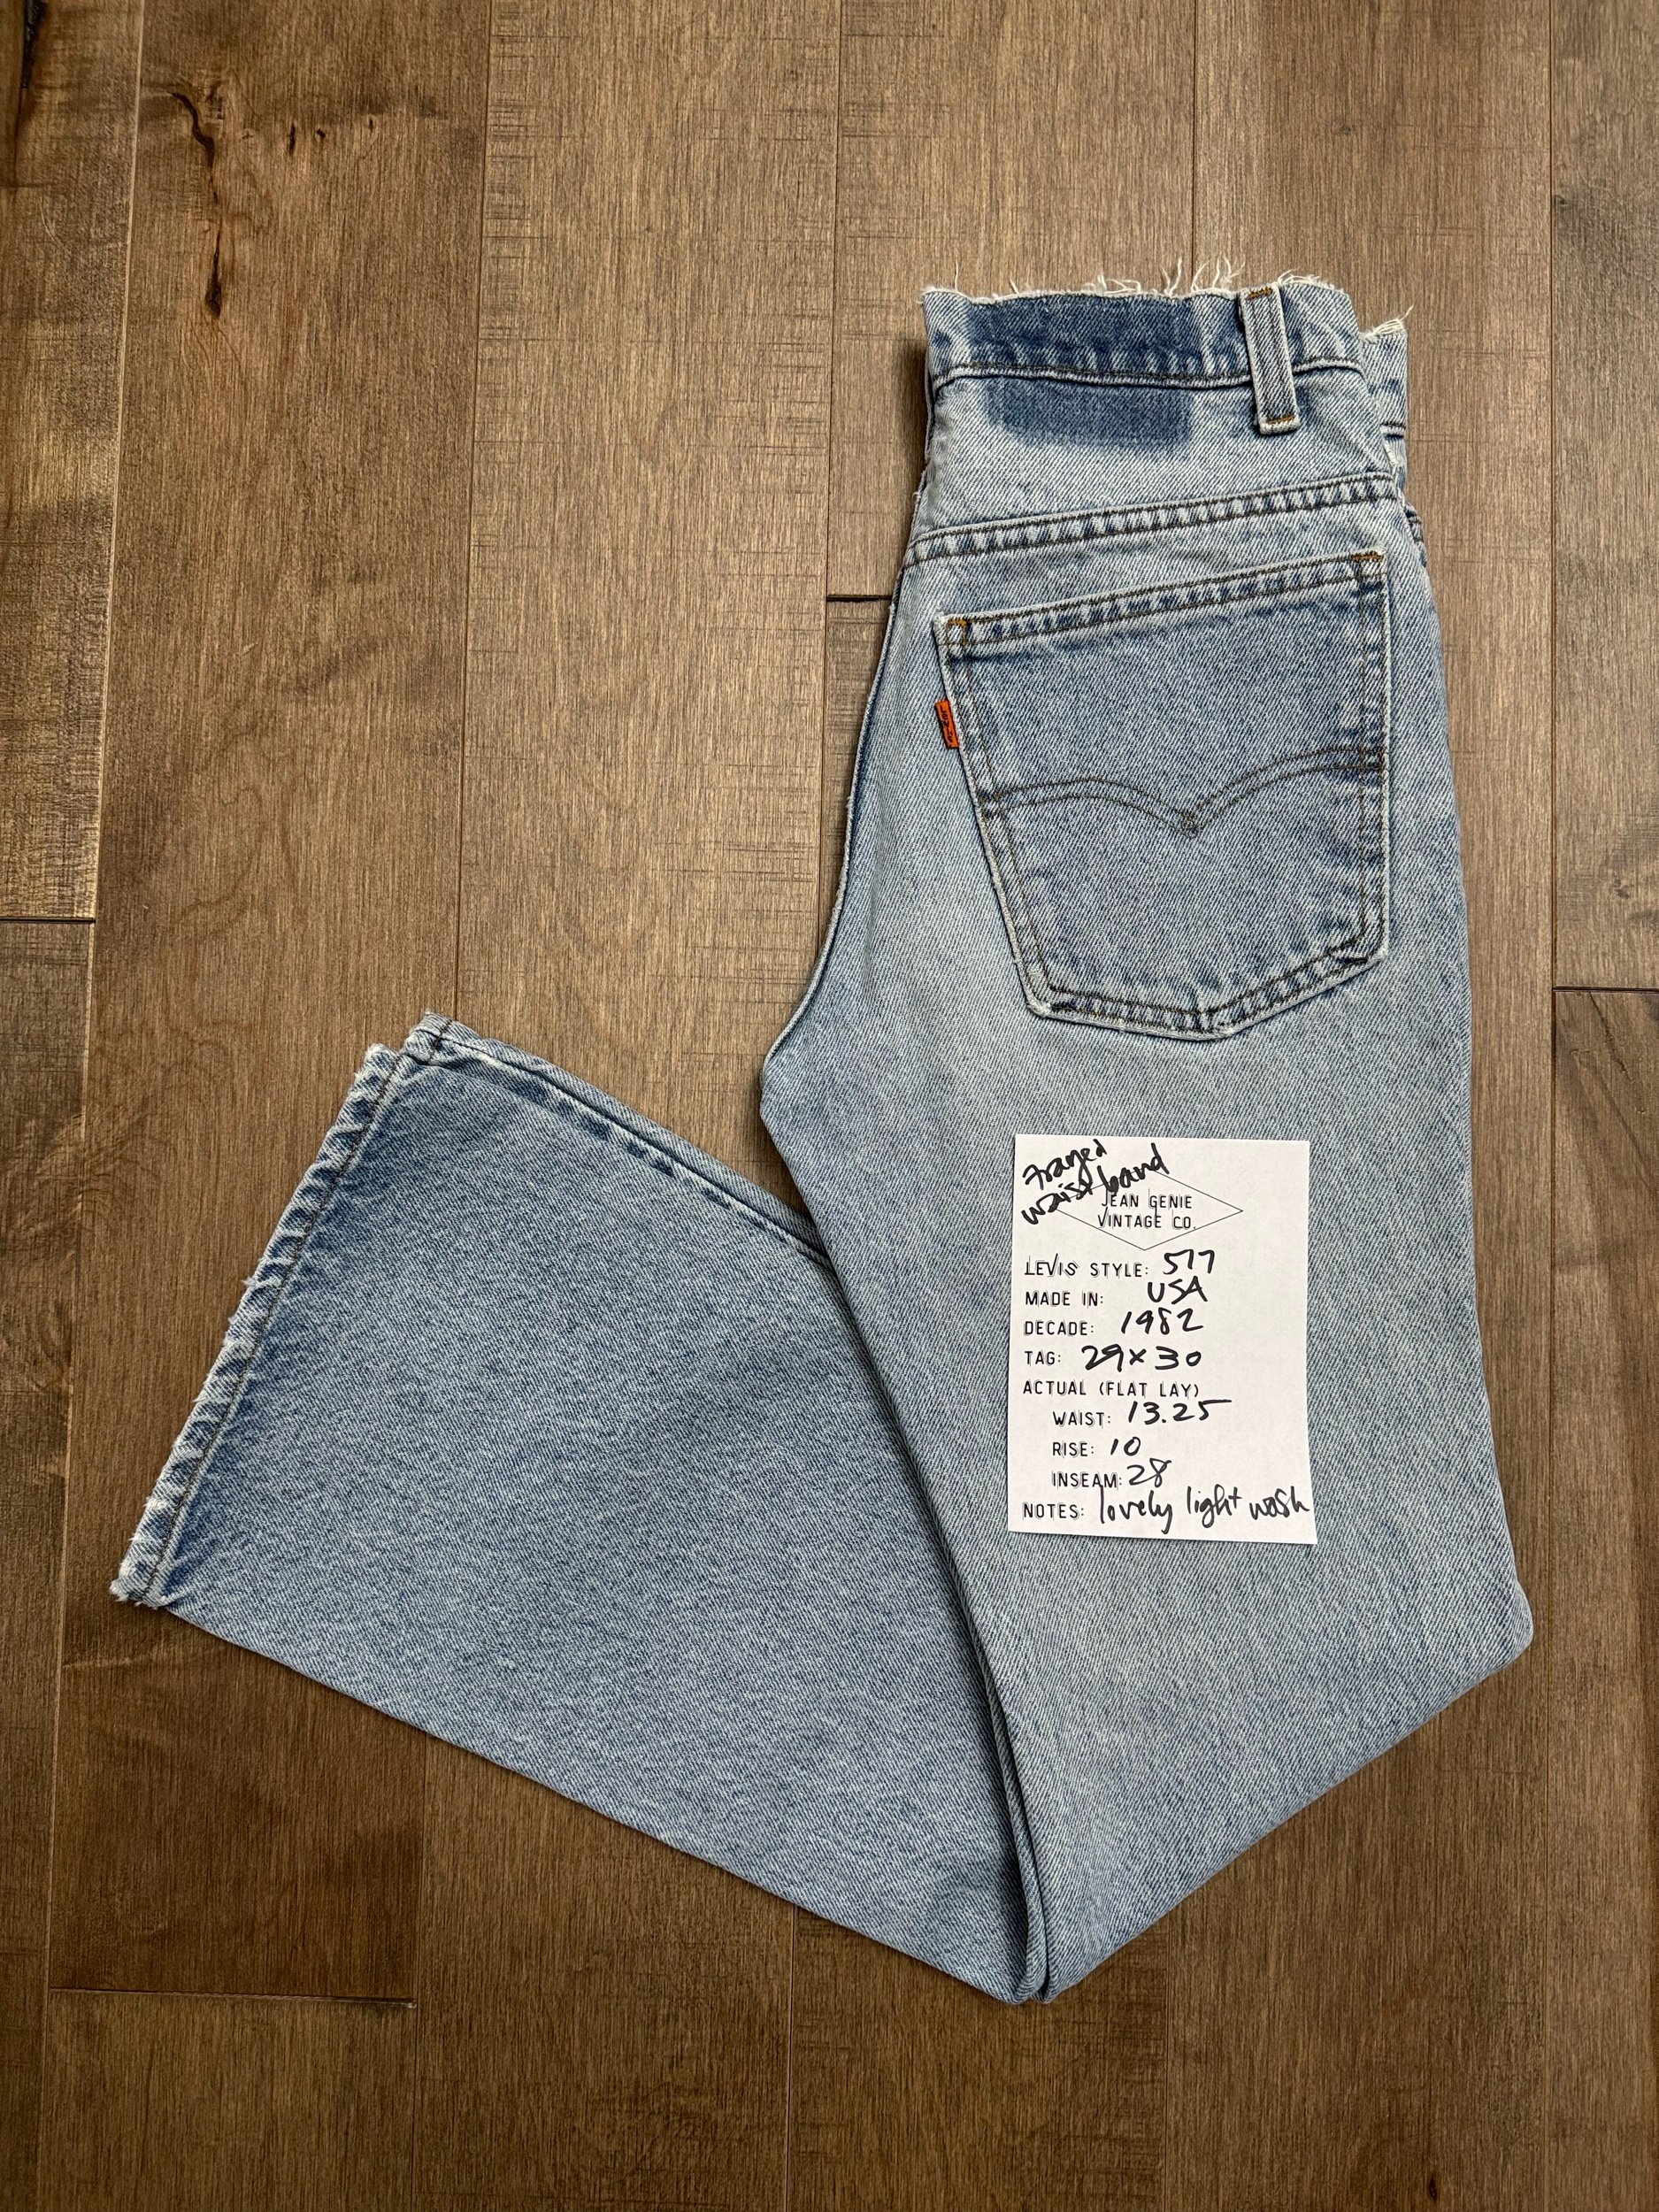 Frayed
waist band
JEAN GENIE
VINTAGE CO.
LEVIS STYLE: 517
MADE IN: USA
DECADE: 1982
TAG: 29x30
ACTUAL (FLAT LAY)
WAIST: 13.25
RISE: 10
INSEAM: 28
NOTES: lovely light wash